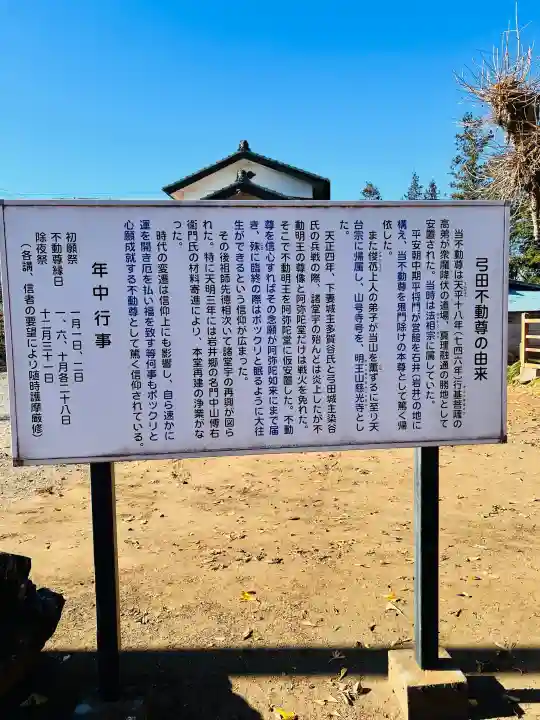 弓田不動尊の由来
当不動尊は天平十八年(七四六年)行基菩薩の
高弟が衆魔降伏の道場、真理融通の勝地として
安置された。当時は法相宗に属していた。
平安朝中期平将門が営館を石井(岩井)の地に
構え、当不動尊を鬼門除けの本尊として篤く帰
依した。
また俊芿上人の弟子が当山を薫ずるに至り天
台宗に帰属し、山号寺号を、明王山慈光寺とし
た。
天正四年、下妻城主多賀谷氏と弓田城主染谷
氏の兵戦の際、諸堂宇の殆んどは炎上したが不
動明王の尊像と阿弥陀堂だけは戦火を免れた。
そこで不動明王を阿弥陀堂に仮安置した。不動
尊を信心すればその念願が阿弥陀如来にまで届
き、殊に臨終の際はポックリと眠るように大往
生ができるという信仰が広まった。
その後祖師先徳相次いで諸堂宇の再興が図ら
れた。特に天明三年には岩井郷の名門中山傳右
衛門氏の材料寄進により、本堂再建の浄業がな
った。
時代の変遷は信仰上にも影響し、自ら速かに
運を開き厄を払い福を致す等何事もポックリと
心願成就する不動尊として篤く信仰されている。
年中行事
初願祭 一月一日、二日
不動尊縁日 一、六、十月各二十八日
除夜祭 十二月三十一日
(各講、信者の要望により随時護摩厳修)